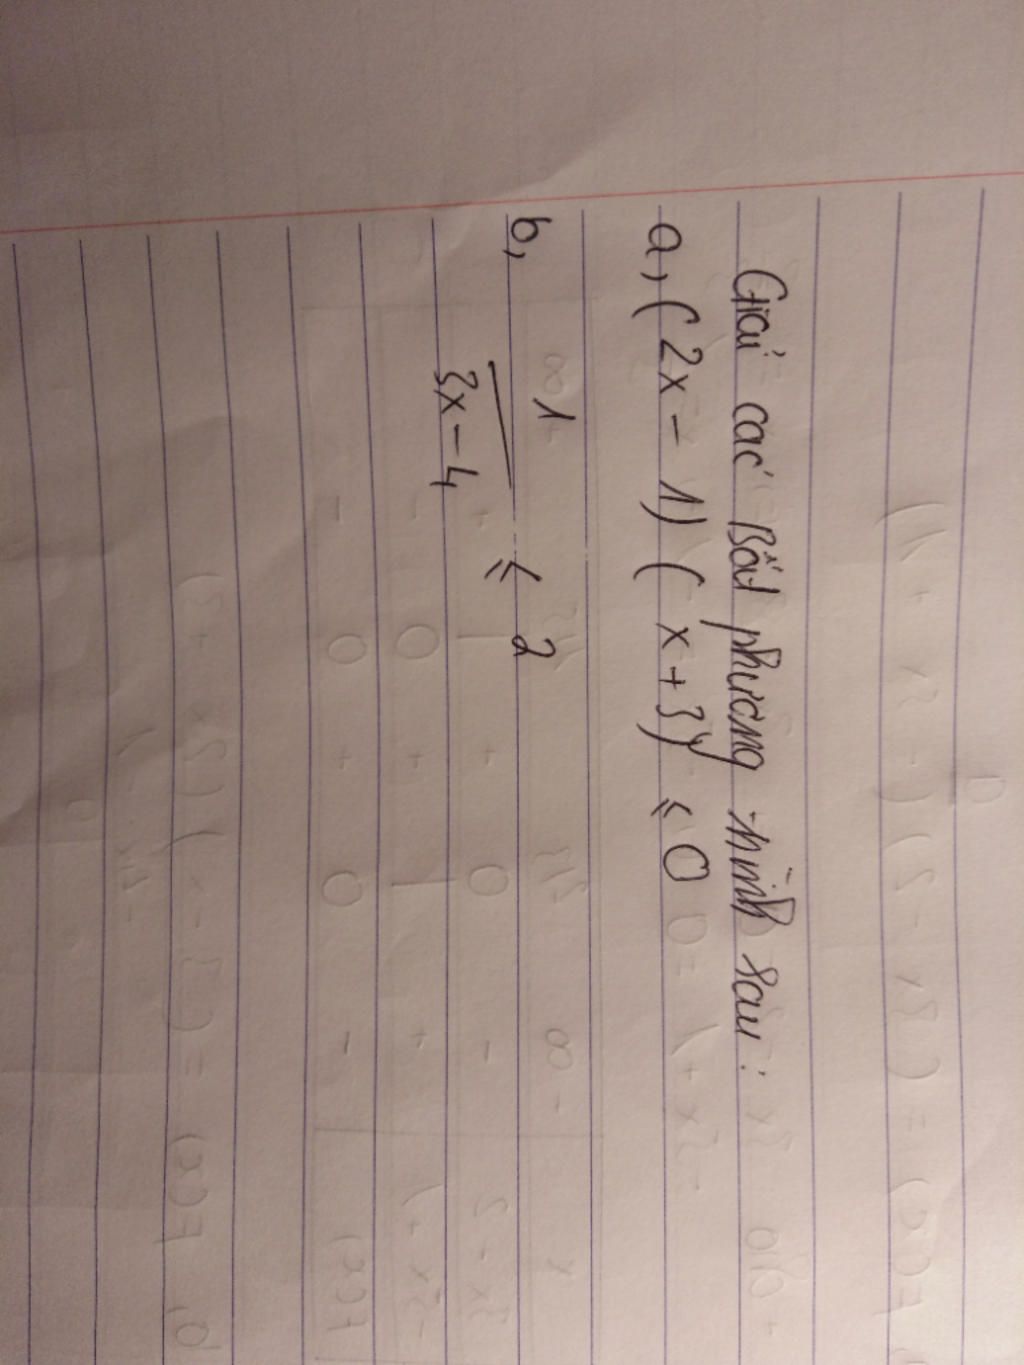 Giải các Bất phương trình sau :
a, ( 2x - 1 ) ( x + 3 ) ≤ 0
b, 1
3x - 4 ≤ 2